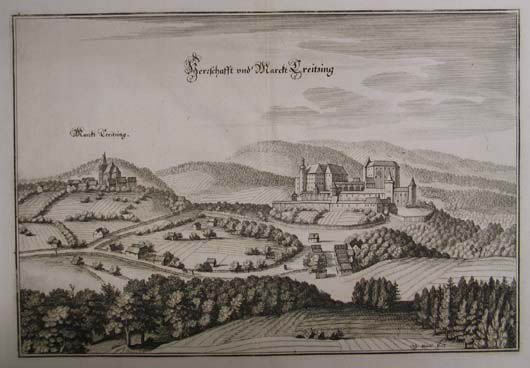 Herrschafft vnd Marckt Creitzing
Marckt Creitzing.